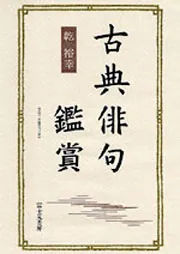 古典俳句
鑑賞
乾 裕幸